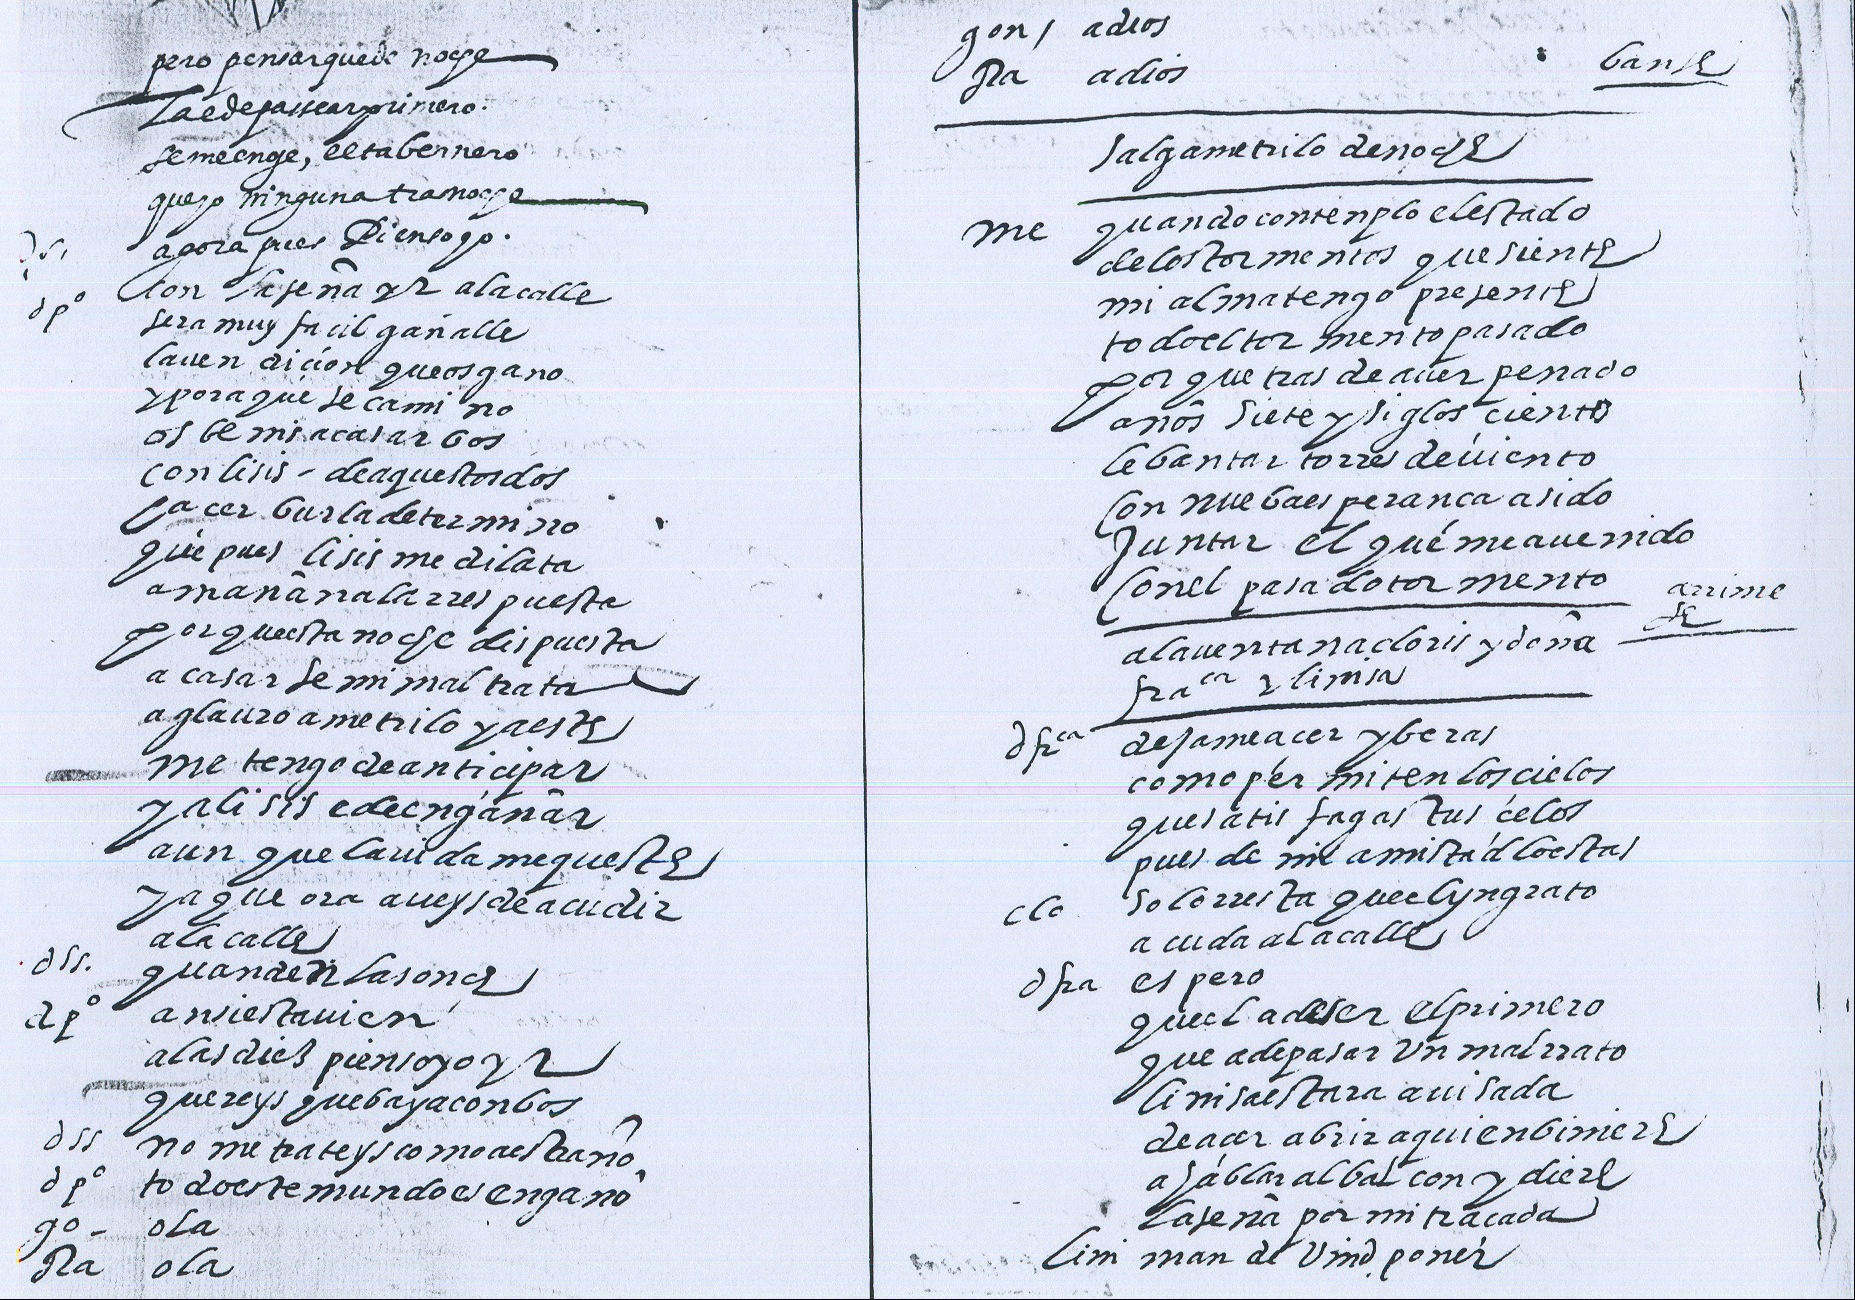 pero pensar que de noche
la e de passear primero.
se me enoje, el tabernero
que yo ninguna tranoche
dss, agora pues Pienso yo.
dp° con la seña yr a la calle
sera muy facil gañalle
la uendicion que os gano
y para que se camino
os bemis a casar bos
con lisis - de aquestos dos
hacer burla determino
que pues lisis me dilata
a mañana la rrespuesta
por questa noche dispuesta
a casarse mi mal trata
a glauro a metrilo y a este
me tengo de anticipar
y a lisis e de engañar
aun que la uida me queste
ya que ora aueys de acudir
a la calle
dss. quan den las once
dp° ansi esta uien
a las diez pienso yo yr
quereys que baya con bos
dss no me trateys como a estraño
dp° todo este mundo es engaño
go - ola
Pla ola
gon / adios
Pla adios
banse
salga metrilo de noche
me quando contenplo el estado
de los tormentos que siente
mi alma tengo presente
todo el tormento pasado
por que tras de auer penado
años siete y siglos ciento
lebantar torres de uiento
con nueba esperanca a sido
Juntar el que me a uenido
con el pasado tormento
arrime
se
a la uentana cloris y doña
fra^ca y limisa
d fr^ca dejame acer y beras
como permiten los cielos
que satisfagas tus celos
pues de mi amistad lo estas
clo solo rresta que el yngrato
acuda a la calle
d fra espero
que el a de ser el primero
que a de pasar un mal rrato
limisa estara auisada
de acer abrir a quien biniere
a hablar al balcon y diere
la seña por mi tracada
Limi man de Umd. poner